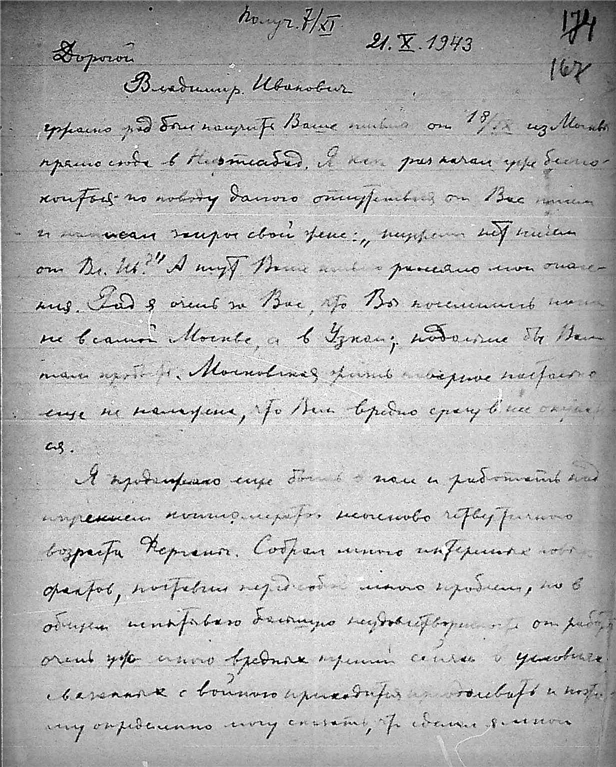 Получ. 7/XI
174
21.X.1943
167
Дорогой
Владимир Иванович
ужасно рад был получить Ваше письмо от 18/IX из Москвы
прямо сюда в . Я как раз начал уже беспо-
коиться по поводу долгого отсутствия от Вас писем
и написал запрос своей жене: „ нет писем
от Вл. Ив.?" А тут Ваше письмо рассеяло мои опасе-
ния. Рад я очень за Вас, что Вы поселились пока
не в самой Москве, а в Узком; подольше бы Вам
там пробыть. Московская жизнь наверное настолько
еще не налажена, что Вам вредно сразу в нее окунать-
ся.
Я продолжаю еще быть в поле и работать над
изучением конгломератов неогеново четвертичного
возраста Ферганы. Собрал много интересных новых
фактов, поставил перед собой много проблем, но в
общем испытываю большую неудовлетворенность от работы
очень уж много вредных трений сейчас в условиях
связанных с войною приходится преодолевать и поэто-
му определенно могу сказать, что сделал я мною